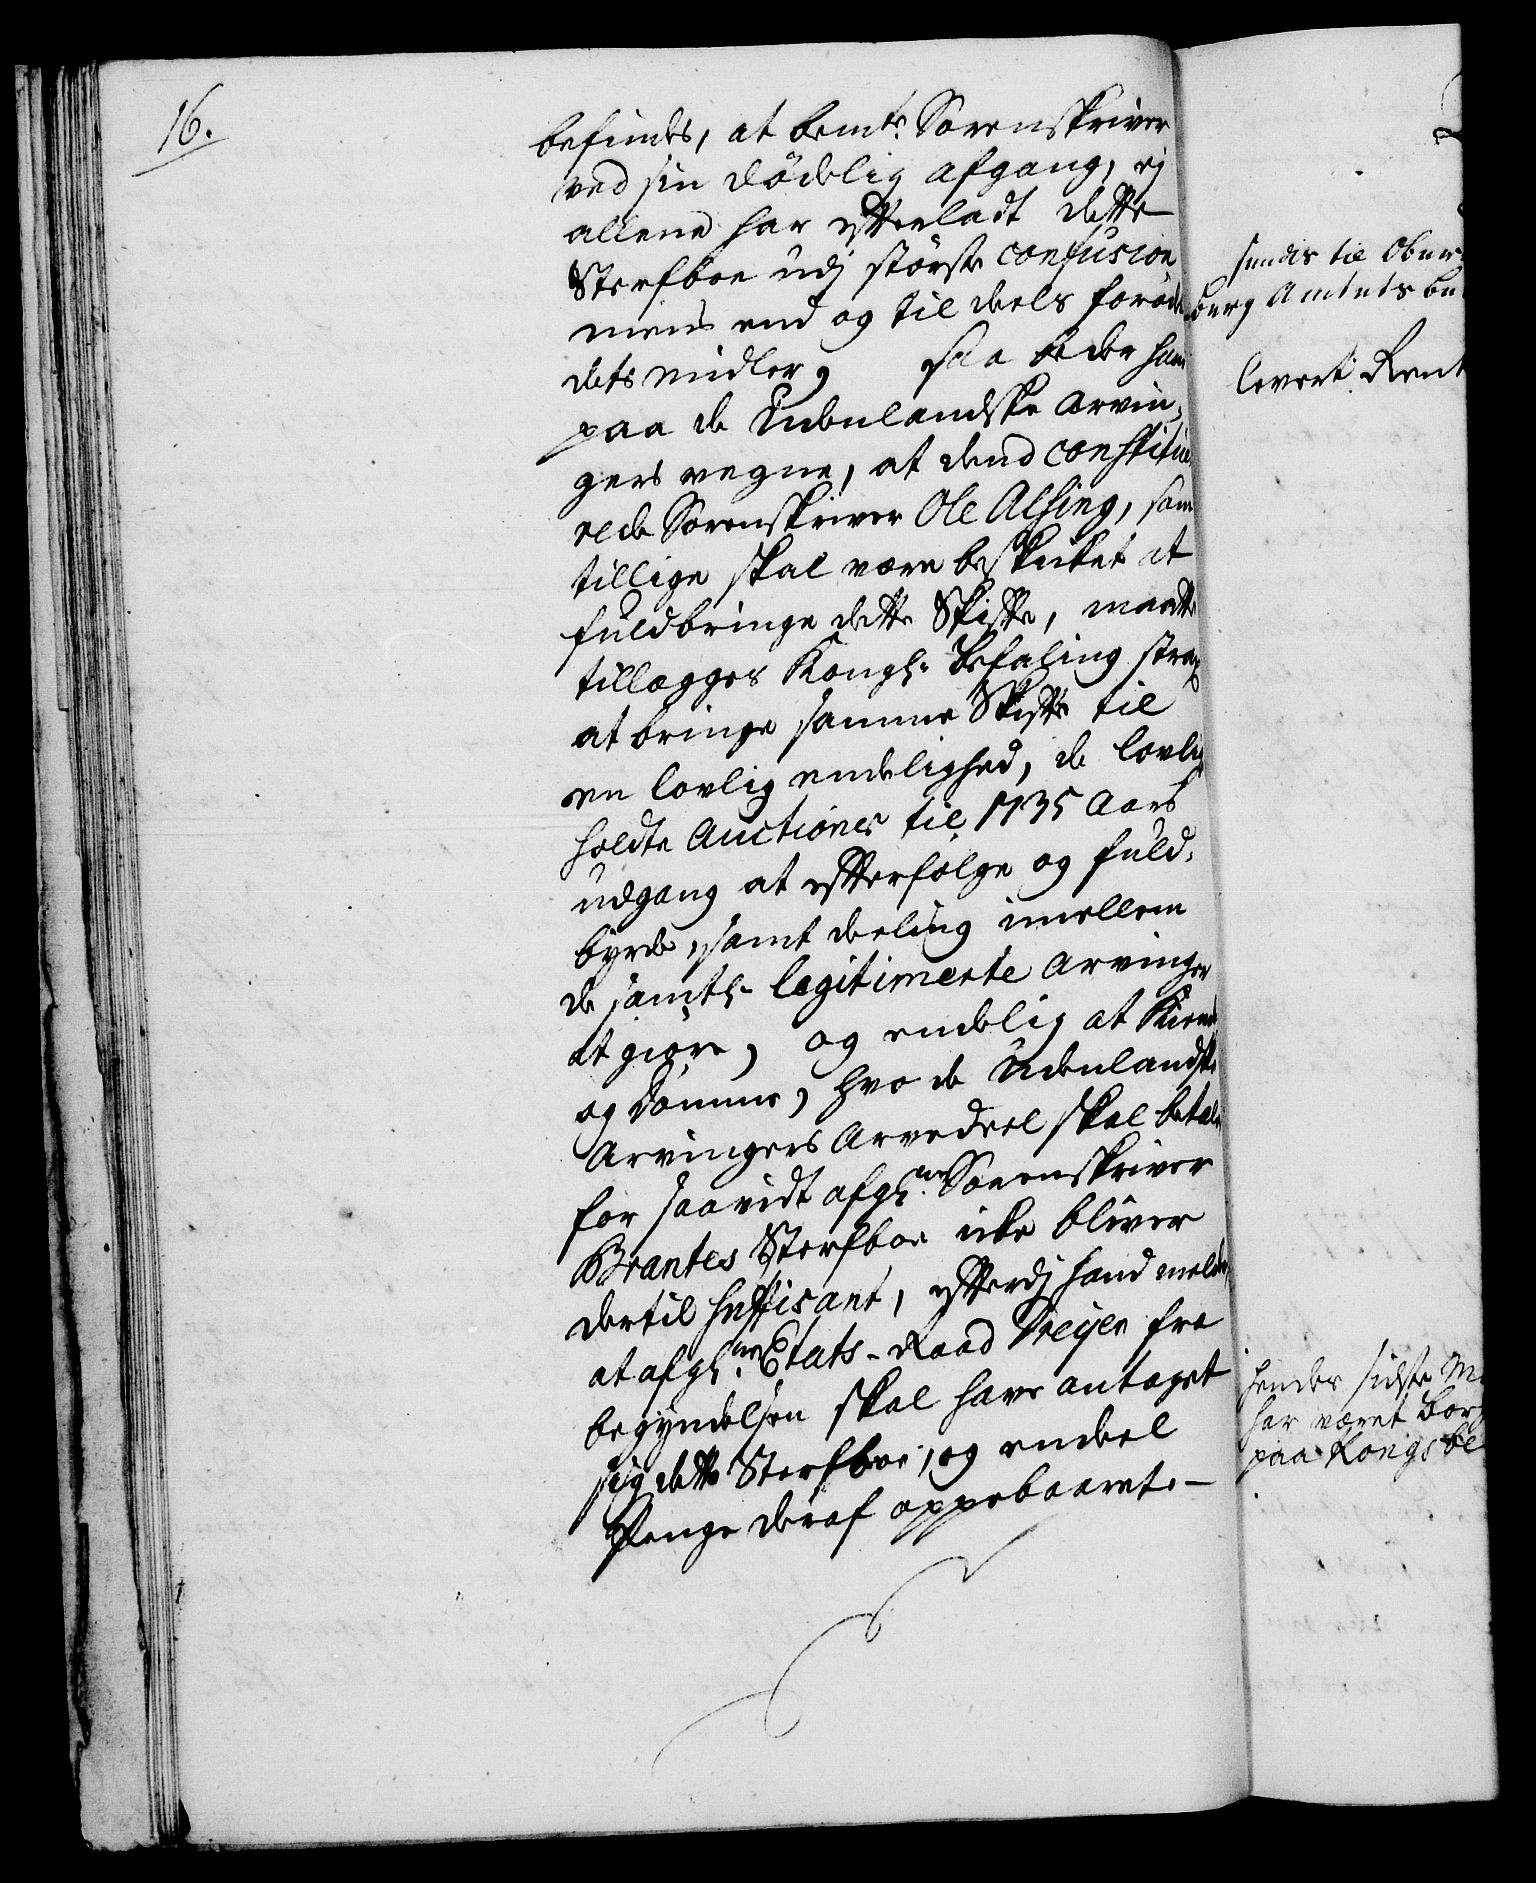 16.
befindes, at bemte Sorenskriver
ved sin dödelig afgang, ej
allene har efterladt dette
Sterfboe udj störste confusion
mens end og til deels foröde
dets midler, saa beder hand
paa de Udenlandske Arvin-
gers vegne, at dend constitue-
rede Sorenskriver Ole Alsing, som
tillige skal være beskicket at
fuldbringe dette Skifte, maatte
tillegges Kongl. Befaling strax
at bringe samme Skifte til
en lovlig endelighed, de lovlig
holdte Auctioner til 1735 Aars
udgang at efterfölge og fuld-
byrde, samt deeling imellem
de samtl. legitimerte Arvinger
at giöre, og endelig at Kiende
og Dömme, hvo de Udenlandske
Arvingers Arvedeel skal betale
for saavidt afgl. Sorenskriver
Brantes Sterfboe icke bliver
dertil suffisant, efterdj hand melder
at afgl. Etats-Raad Dreyer fra
begyndelsen skal have antaget
sig dette Sterfboe, og endeel
Penge deraf oppebaaret.
sendes til Ober
berg Amtets be
levert Rent
hendes sidste M
har været Bor
paa Kongsbe